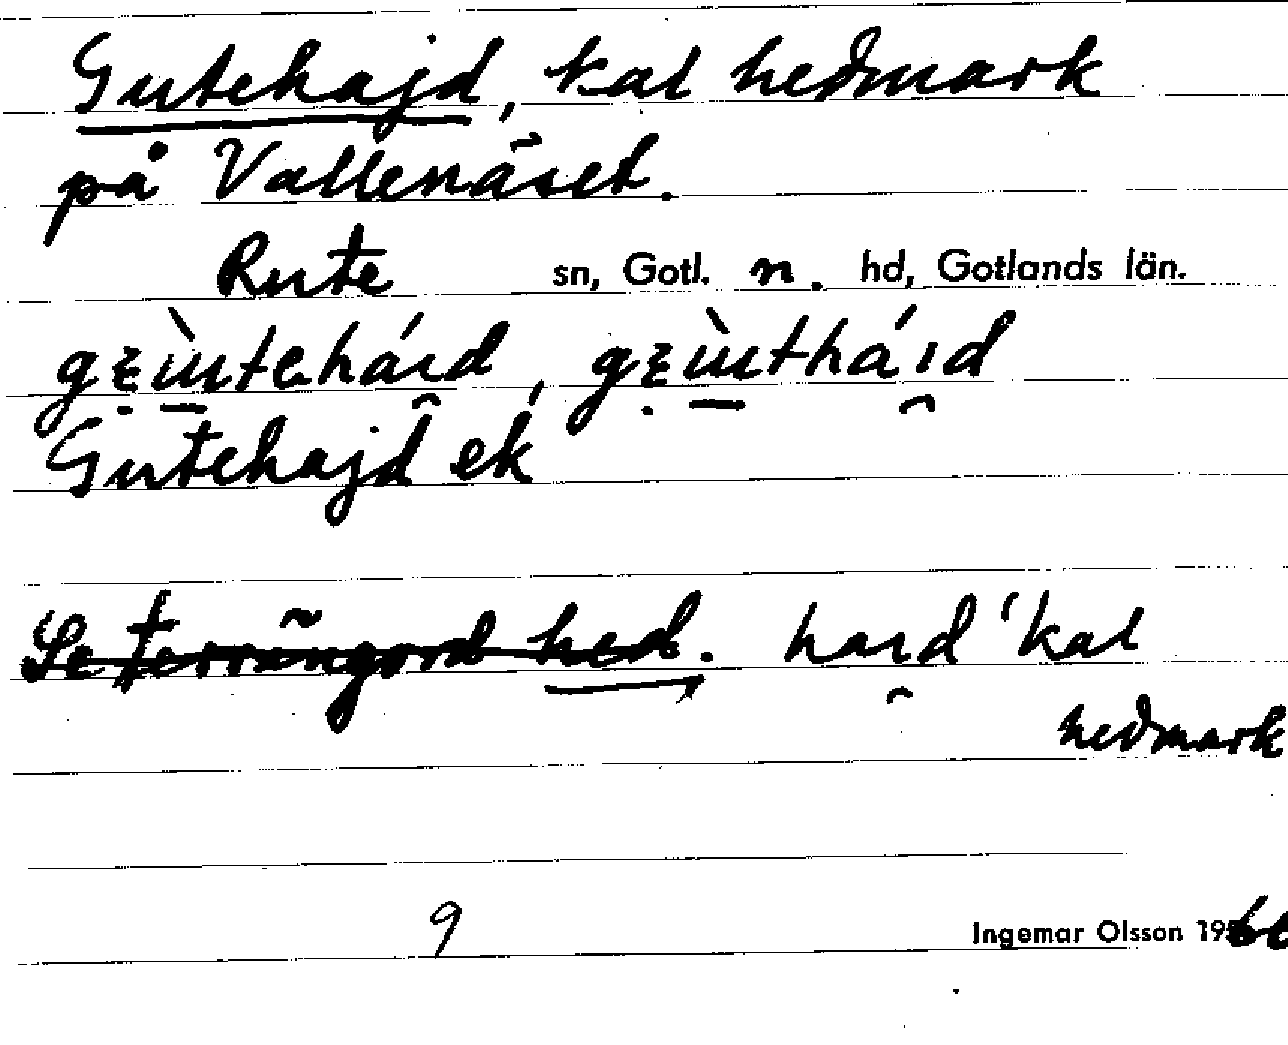 Gutehajd, kal hedmark
på Vallenäset.
Rute sn, Gotl. n. hd, Gotlands län.
Gutehajd ek
Se terrängord hed. haid 'kal
hedmark
9
Ingemar Olsson 1960